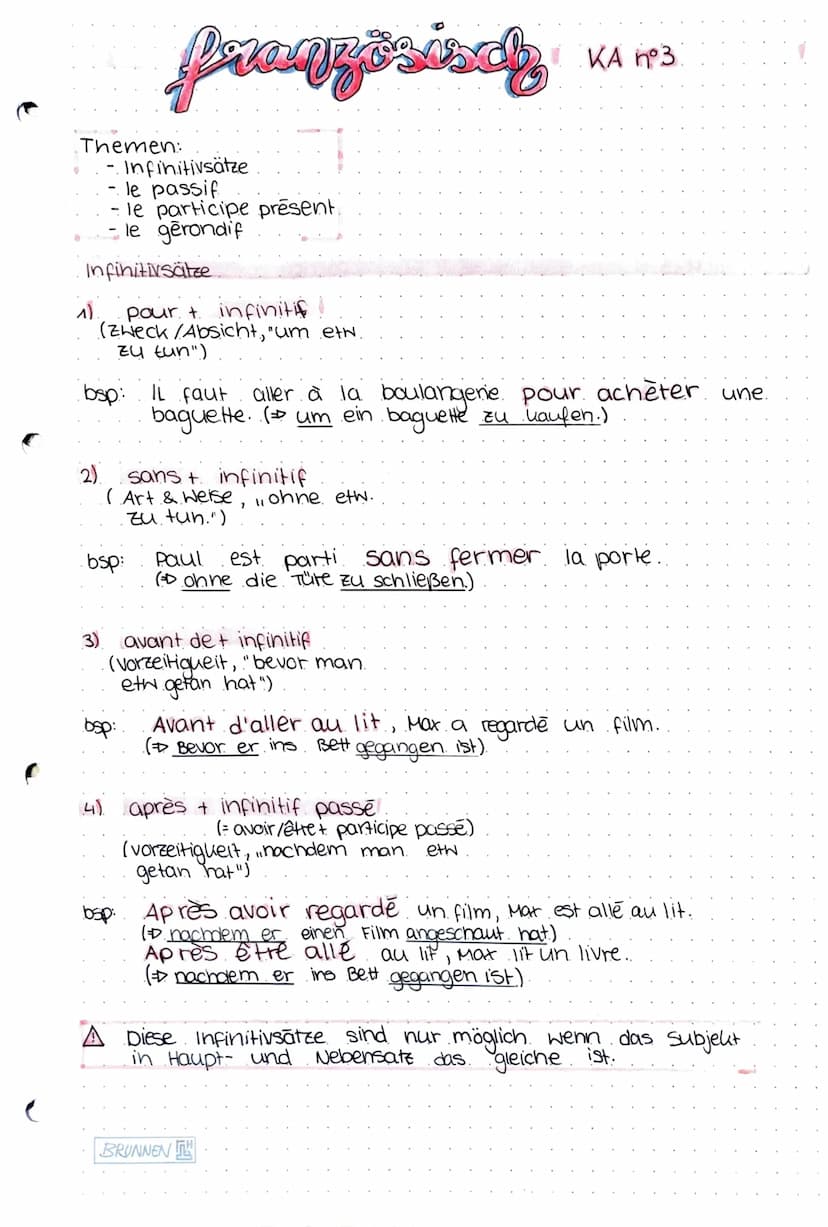 französisch KA nº3
Themen:
- Infinitivsätze
- le passif
- le participe présent
- le gérondif
Infinitivsätze
1) pour + infinitif
(Zweck/Absicht, "um etw.
zu tun")
bsp: Il faut aller à la boulangerie pour achèter une
baguette. (⇒ um ein baguette zu kaufen.)
2) sans + infinitif
(Art & Weise, „ohne etw.
zu tun.")
bsp: Paul est parti sans fermer la porte.
(⇒ ohne die Türe zu schließen.)
3) avant de + infinitif
(vorzeitigkeit, "bevor man
etw getan hat")
bsp: Avant d'aller au lit, Max a regardé un film.
(⇒ Bevor er ins Bett gegangen ist)
4) après + infinitif passé
(= avoir/être + participe passé)
(vorzeitigkeit, „nachdem man etw
getan hat")
bsp: Après avoir regardé un film, Max est allé au lit.
(⇒ nachdem er einen Film angeschaut hat)
Après être allé au lit, Max lit un livre.
(⇒ nachdem er ins Bett gegangen ist)
⚠ Diese Infinitivsätze sind nur möglich wenn das Subjekt
in Haupt- und Nebensatz das gleiche ist.
BRUNNEN